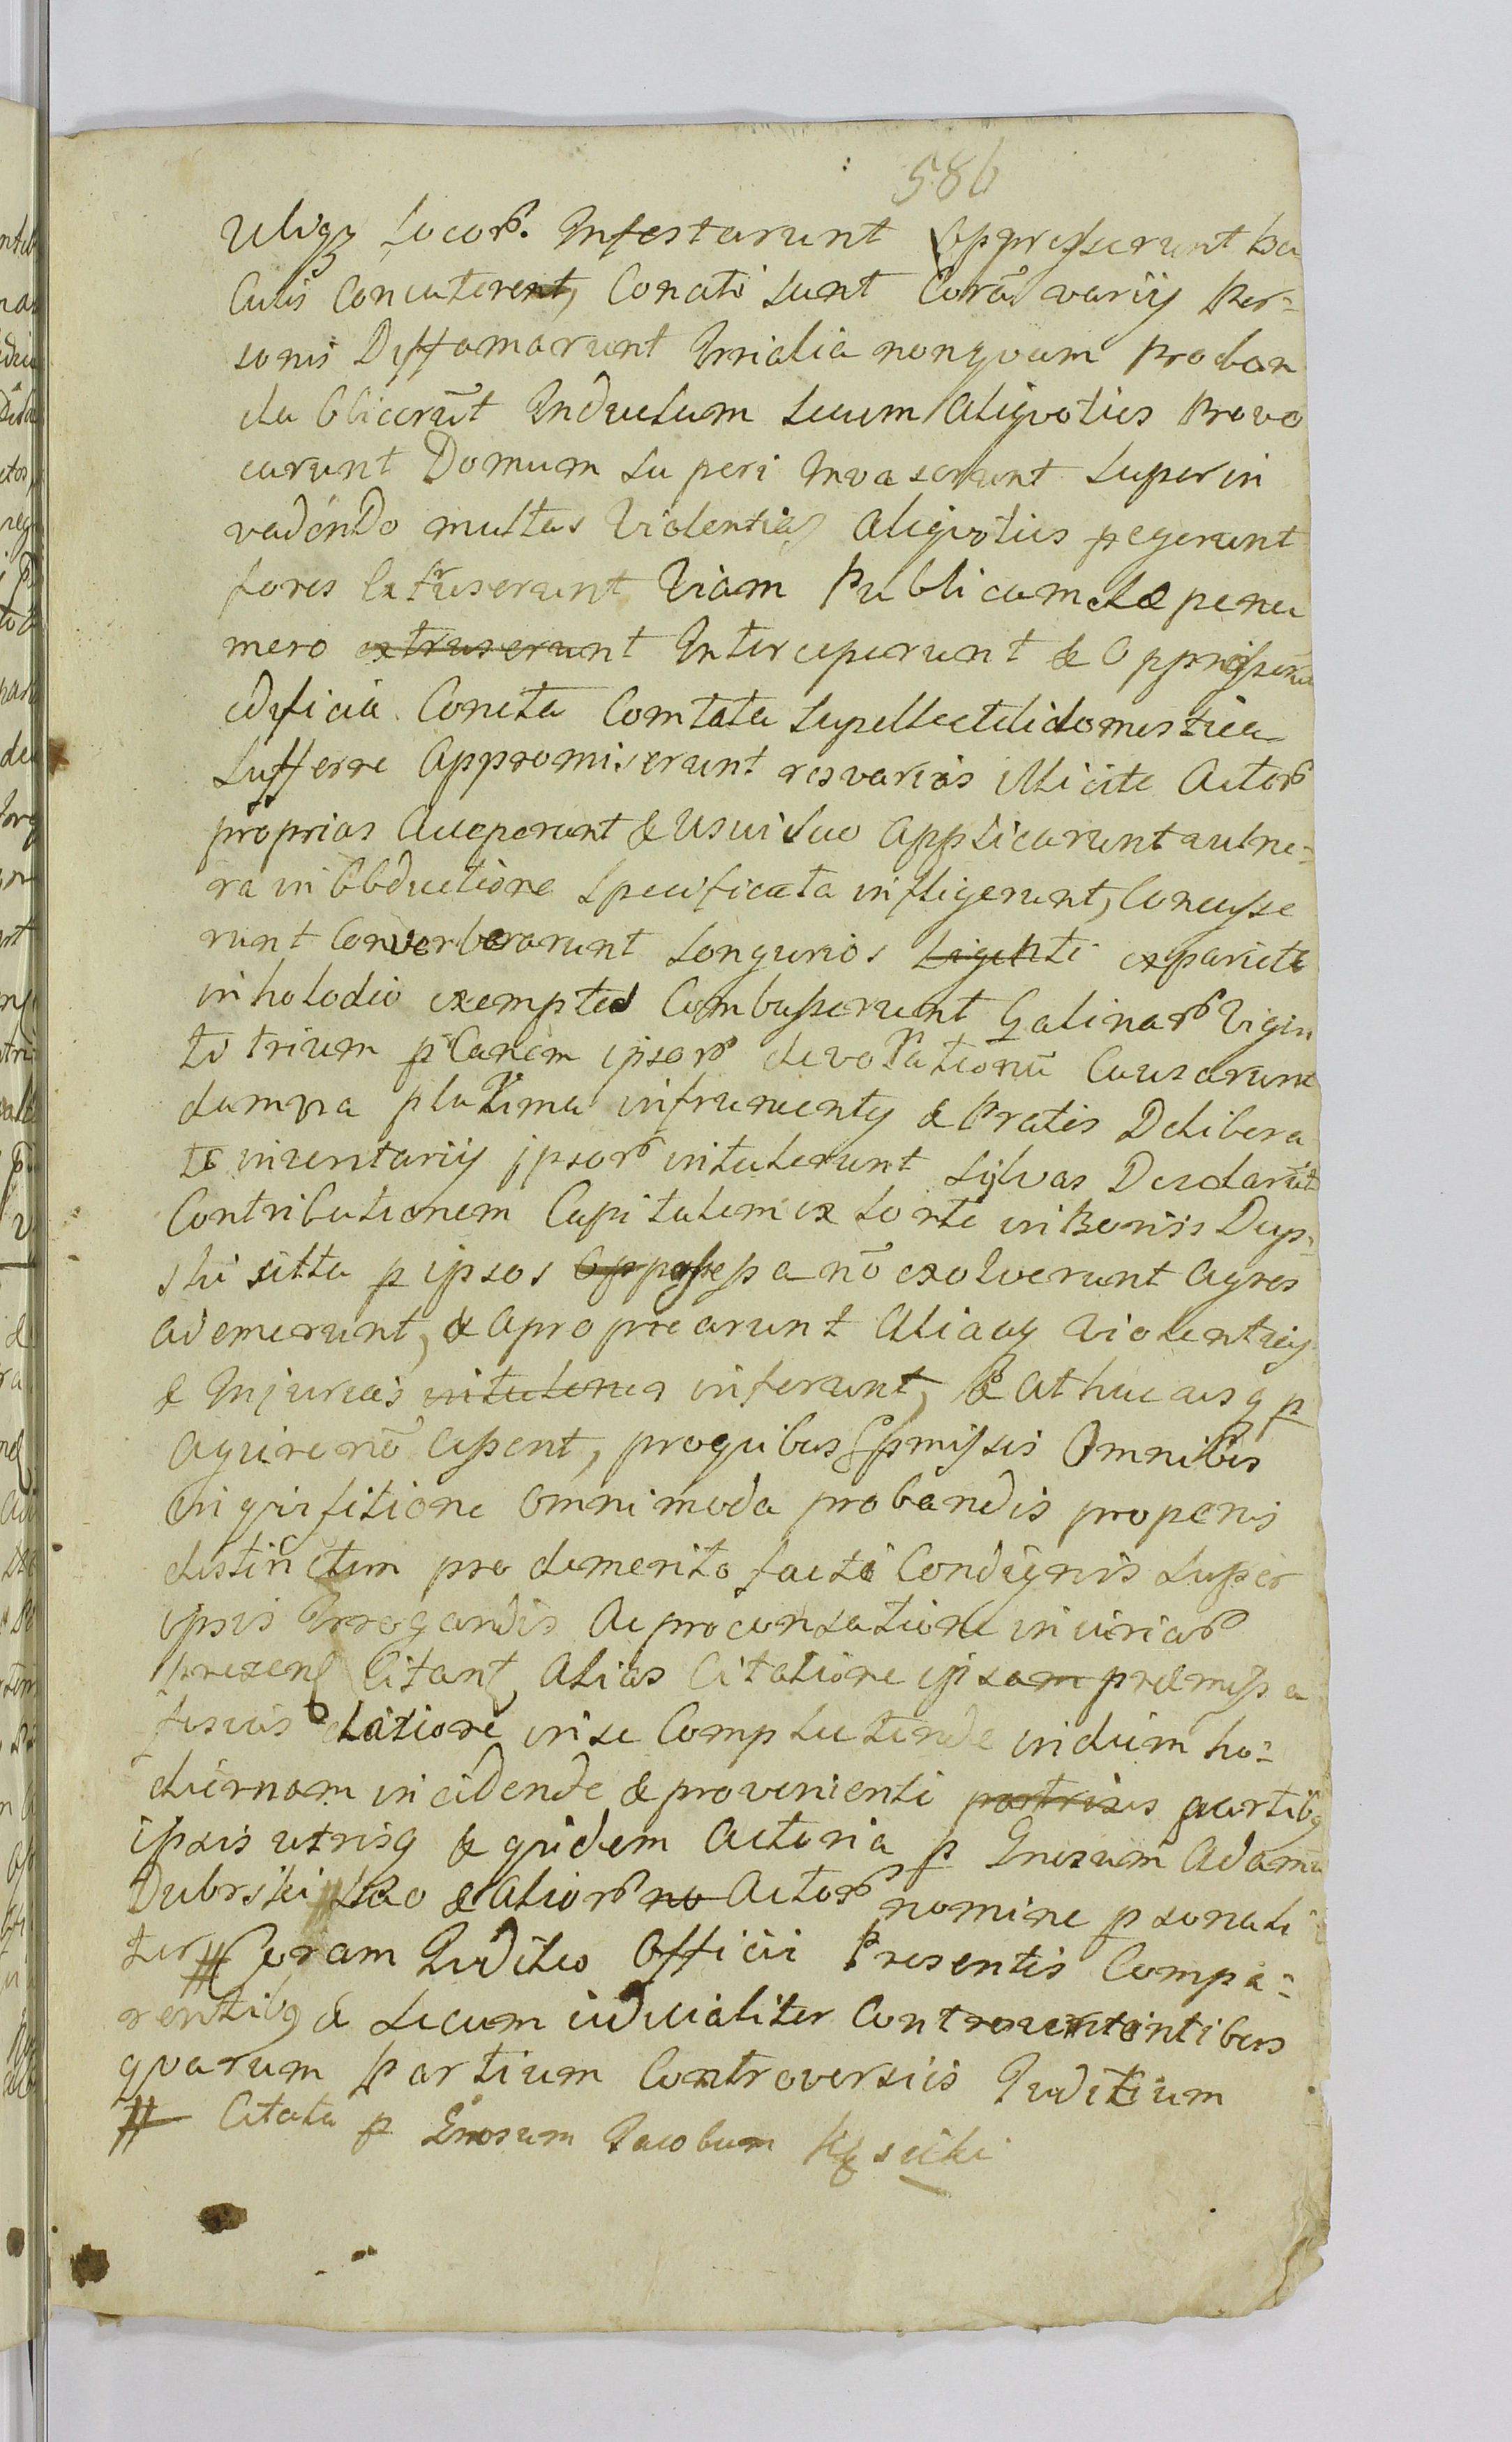 586
Ubiqz Locor. Infestarunt Oppresserunt ba
Culis Concuterent, Conati sunt Corā varijs Per=
sonis Diffamarunt Irrialia nonqvam proban
da Obiecerūt Inductum secum Aliqvoties Provo
carunt Domum su peri Invaserunt superin
vadendo multas Violentias Aliqvoties pegerunt
fores Extruserunt Viam Publicam sæpenu
mero extruserunt Interceperunt & Oppresseru
ædificia Concta Comtata supellectili domestica
Sufferre Appromiserunt res varias illicite Actor
proprias Acceperunt & usui suo Applicarunt vulne=
ra in Obductione specificata infligerunt, Concusse
runt Converberarunt Longurios Ligniti ex pariete
in holodio exemptos Combusserunt Galinar Vigin
ti trium p Canem ipsor devorationū Causarunt
damna plurima in frumentis & Pratis Delibera
te inventarij ipsor intulerunt sijlvas Desdarūt
Contributionem Capitalem ex sorte in Bonis Dup=
ski sitta p ipsos Opp possessa nō exolverunt agros
ademerunt, & apropriarunt Aliasq violentias
& Injurias intulerun inferunt, & Athuc usq p
agere nō cessent, pro quibus pmissis Omnibus
Inquisitione omnimoda probandis pro penis
distinctim pro demerito facti Condignis super
ipsis Irrogandis Ac pro compensatione iniuriar
presens Citant, Alias Citatione ipsam præmissa
fusius Latiore in se Complectende in diem ho=
diernam incidende & provenienti partibus partibq
ipsis utrisq & qvidem Actoria p Gnrosum Adamū
Dubrski suo & Alior no Actor nomine p sonali
ter # Coram Iuditio Officii Presentis Compa=
rentibq & secum iudicialiter Controvertentibus
qvarum Partium Controversiis Iuditium
# Citata p Gnrosum Jacobum Kęsicki